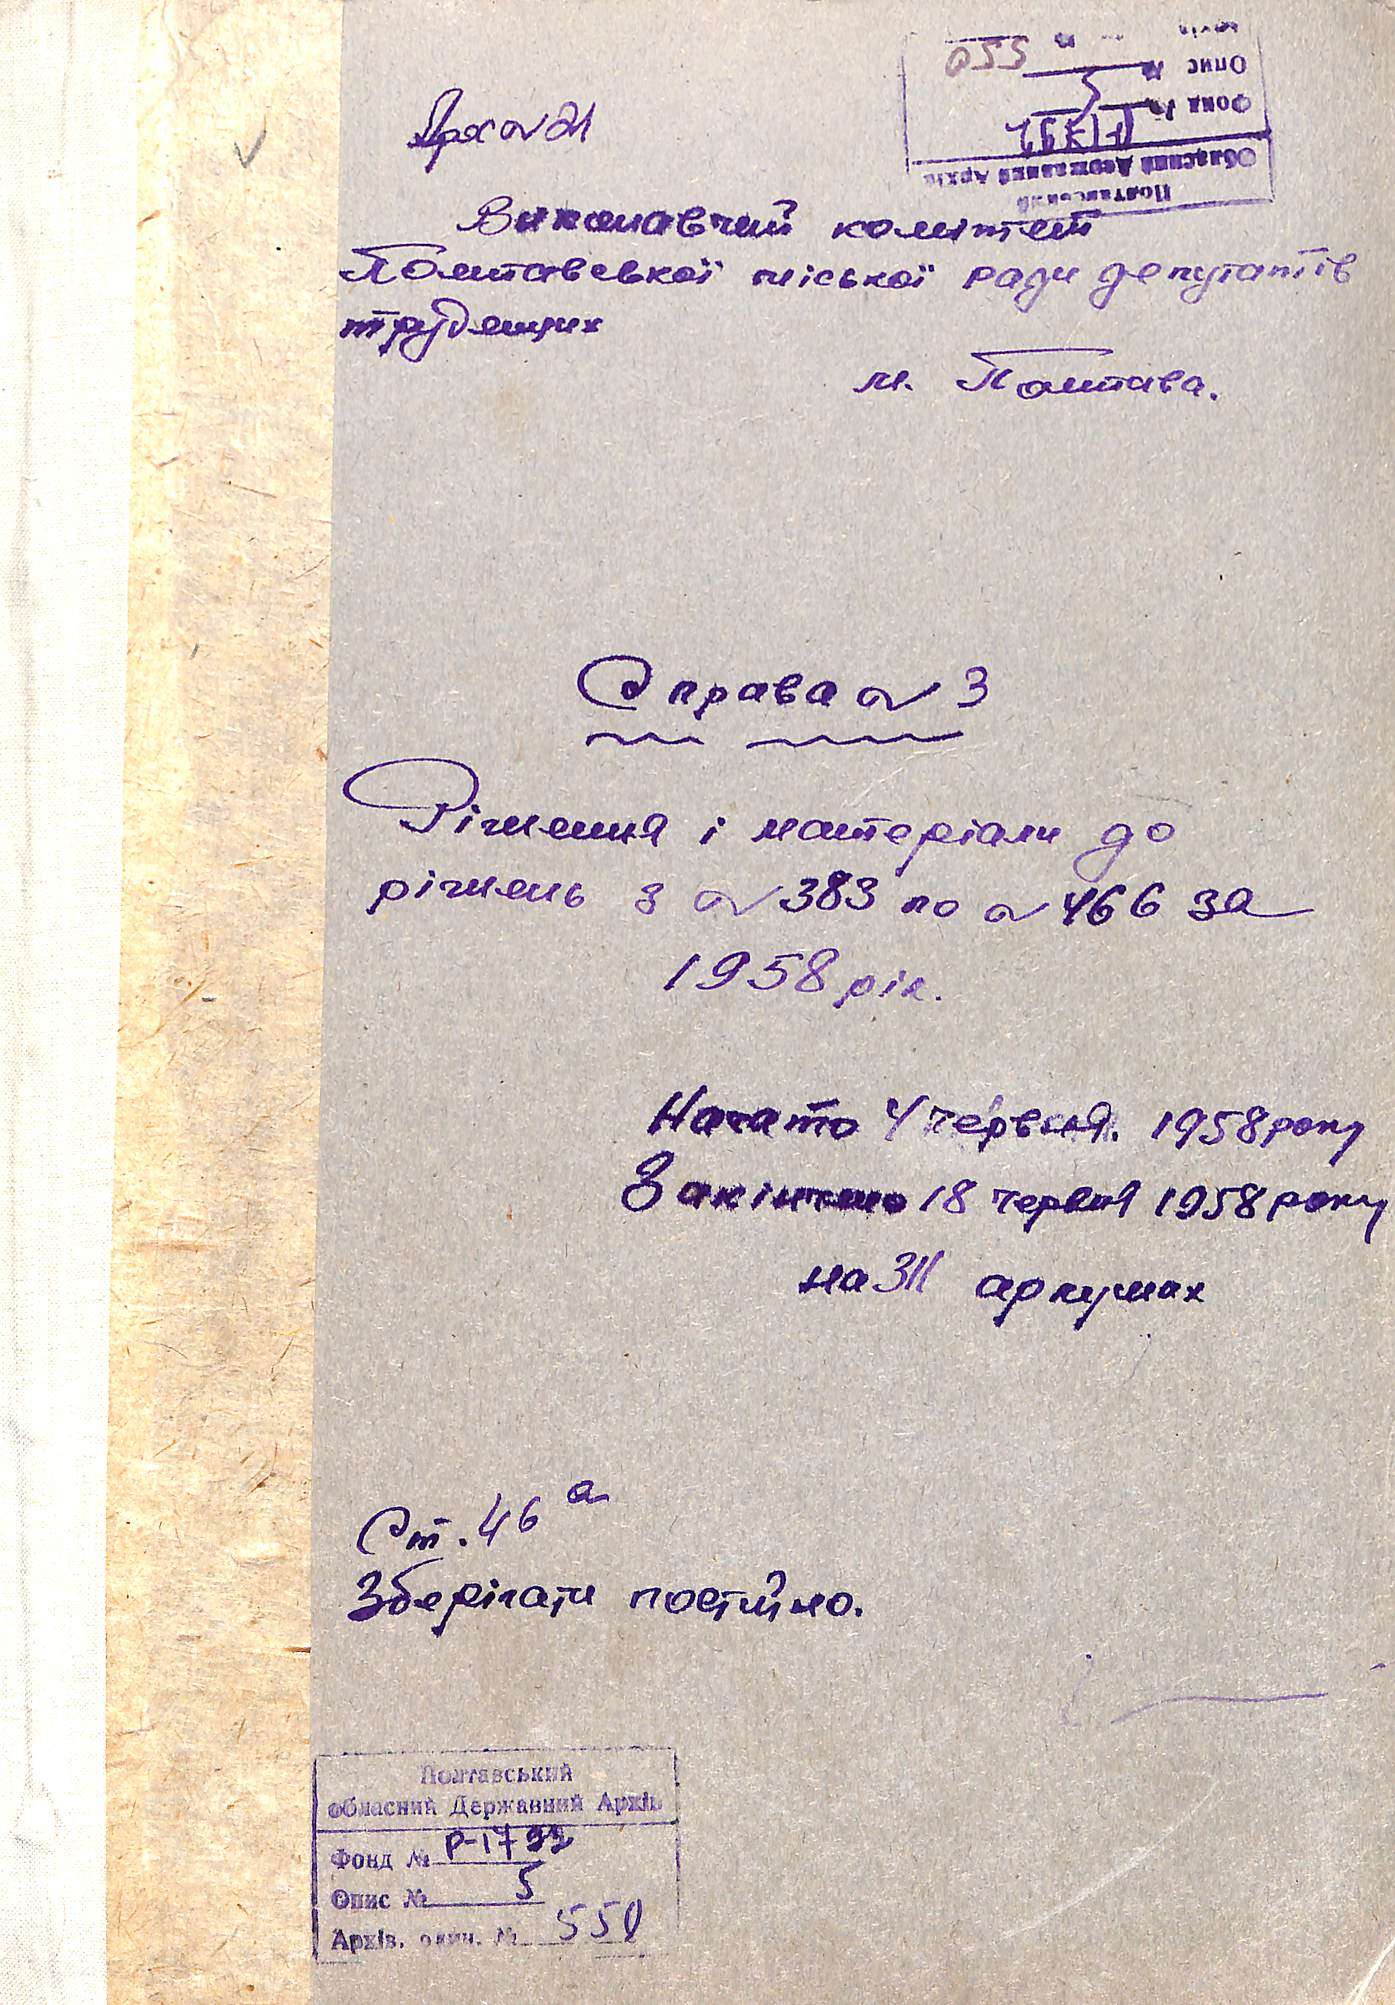 Арх № 21
Полтавський
Обласний Державний Архів
Фонд №
Опис № 5
550
Виконавчий комітет
Полтавської міської ради депутатів
трудящих
м. Полтава.
Справа № 3
Рішення і матеріали до
рішень з № 383 по № 466 за
1958 рік.
Начато 4 червня. 1958 року
Закінчено 18 червня 1958 року
на 311 аркушах
Ст. 46 а
Зберігати постійно.
Полтавський
обласний Державний Архів
Фонд № Р-1799
Опис № 5
Архів. один. № 550